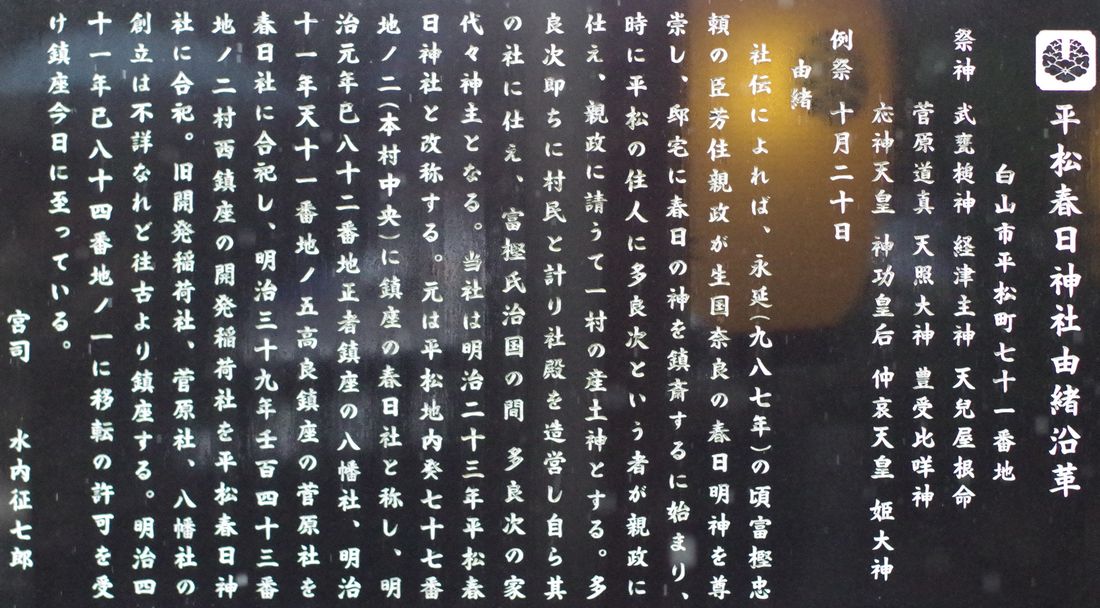 平松春日神社由緒沿革
白山市平松町七十一番地
祭神 武甕槌神 経津主神 天兒屋根命
菅原道真 天照大神 豊受比咩神
応神天皇 神功皇后 仲哀天皇 姫大神
例祭 十月二十日
由緒
社伝によれば、永延(九八七年)の頃富樫忠
頼の臣芳住親政が生国奈良の春日明神を尊
崇し、邸宅に春日の神を鎮斎するに始まり、
時に平松の住人に多良次という者が親政に
仕え、親政に請うて一村の産土神とする。多
良次即ちに村民と計り社殿を造営し自ら其
の社に仕え、富樫氏治国の間 多良次の家
代々神主となる。当社は明治二十三年平松春
日神社と改称する。元は平松地内癸七十七番
地ノ二(本村中央)に鎮座の春日社と称し、明
治元年巳八十二番地正者鎮座の八幡社、明治
十一年天十一番地ノ五高良鎮座の菅原社を
春日社に合祀し、明治三十九年壬百四十三番
地ノ二村西鎮座の開発稲荷社を平松春日神
社に合祀。旧開発稲荷社、菅原社、八幡社の
創立は不詳なれど往古より鎮座する。明治四
十一年巳八十四番地ノ一に移転の許可を受
け鎮座今日に至っている。
宮司 水内征七郎